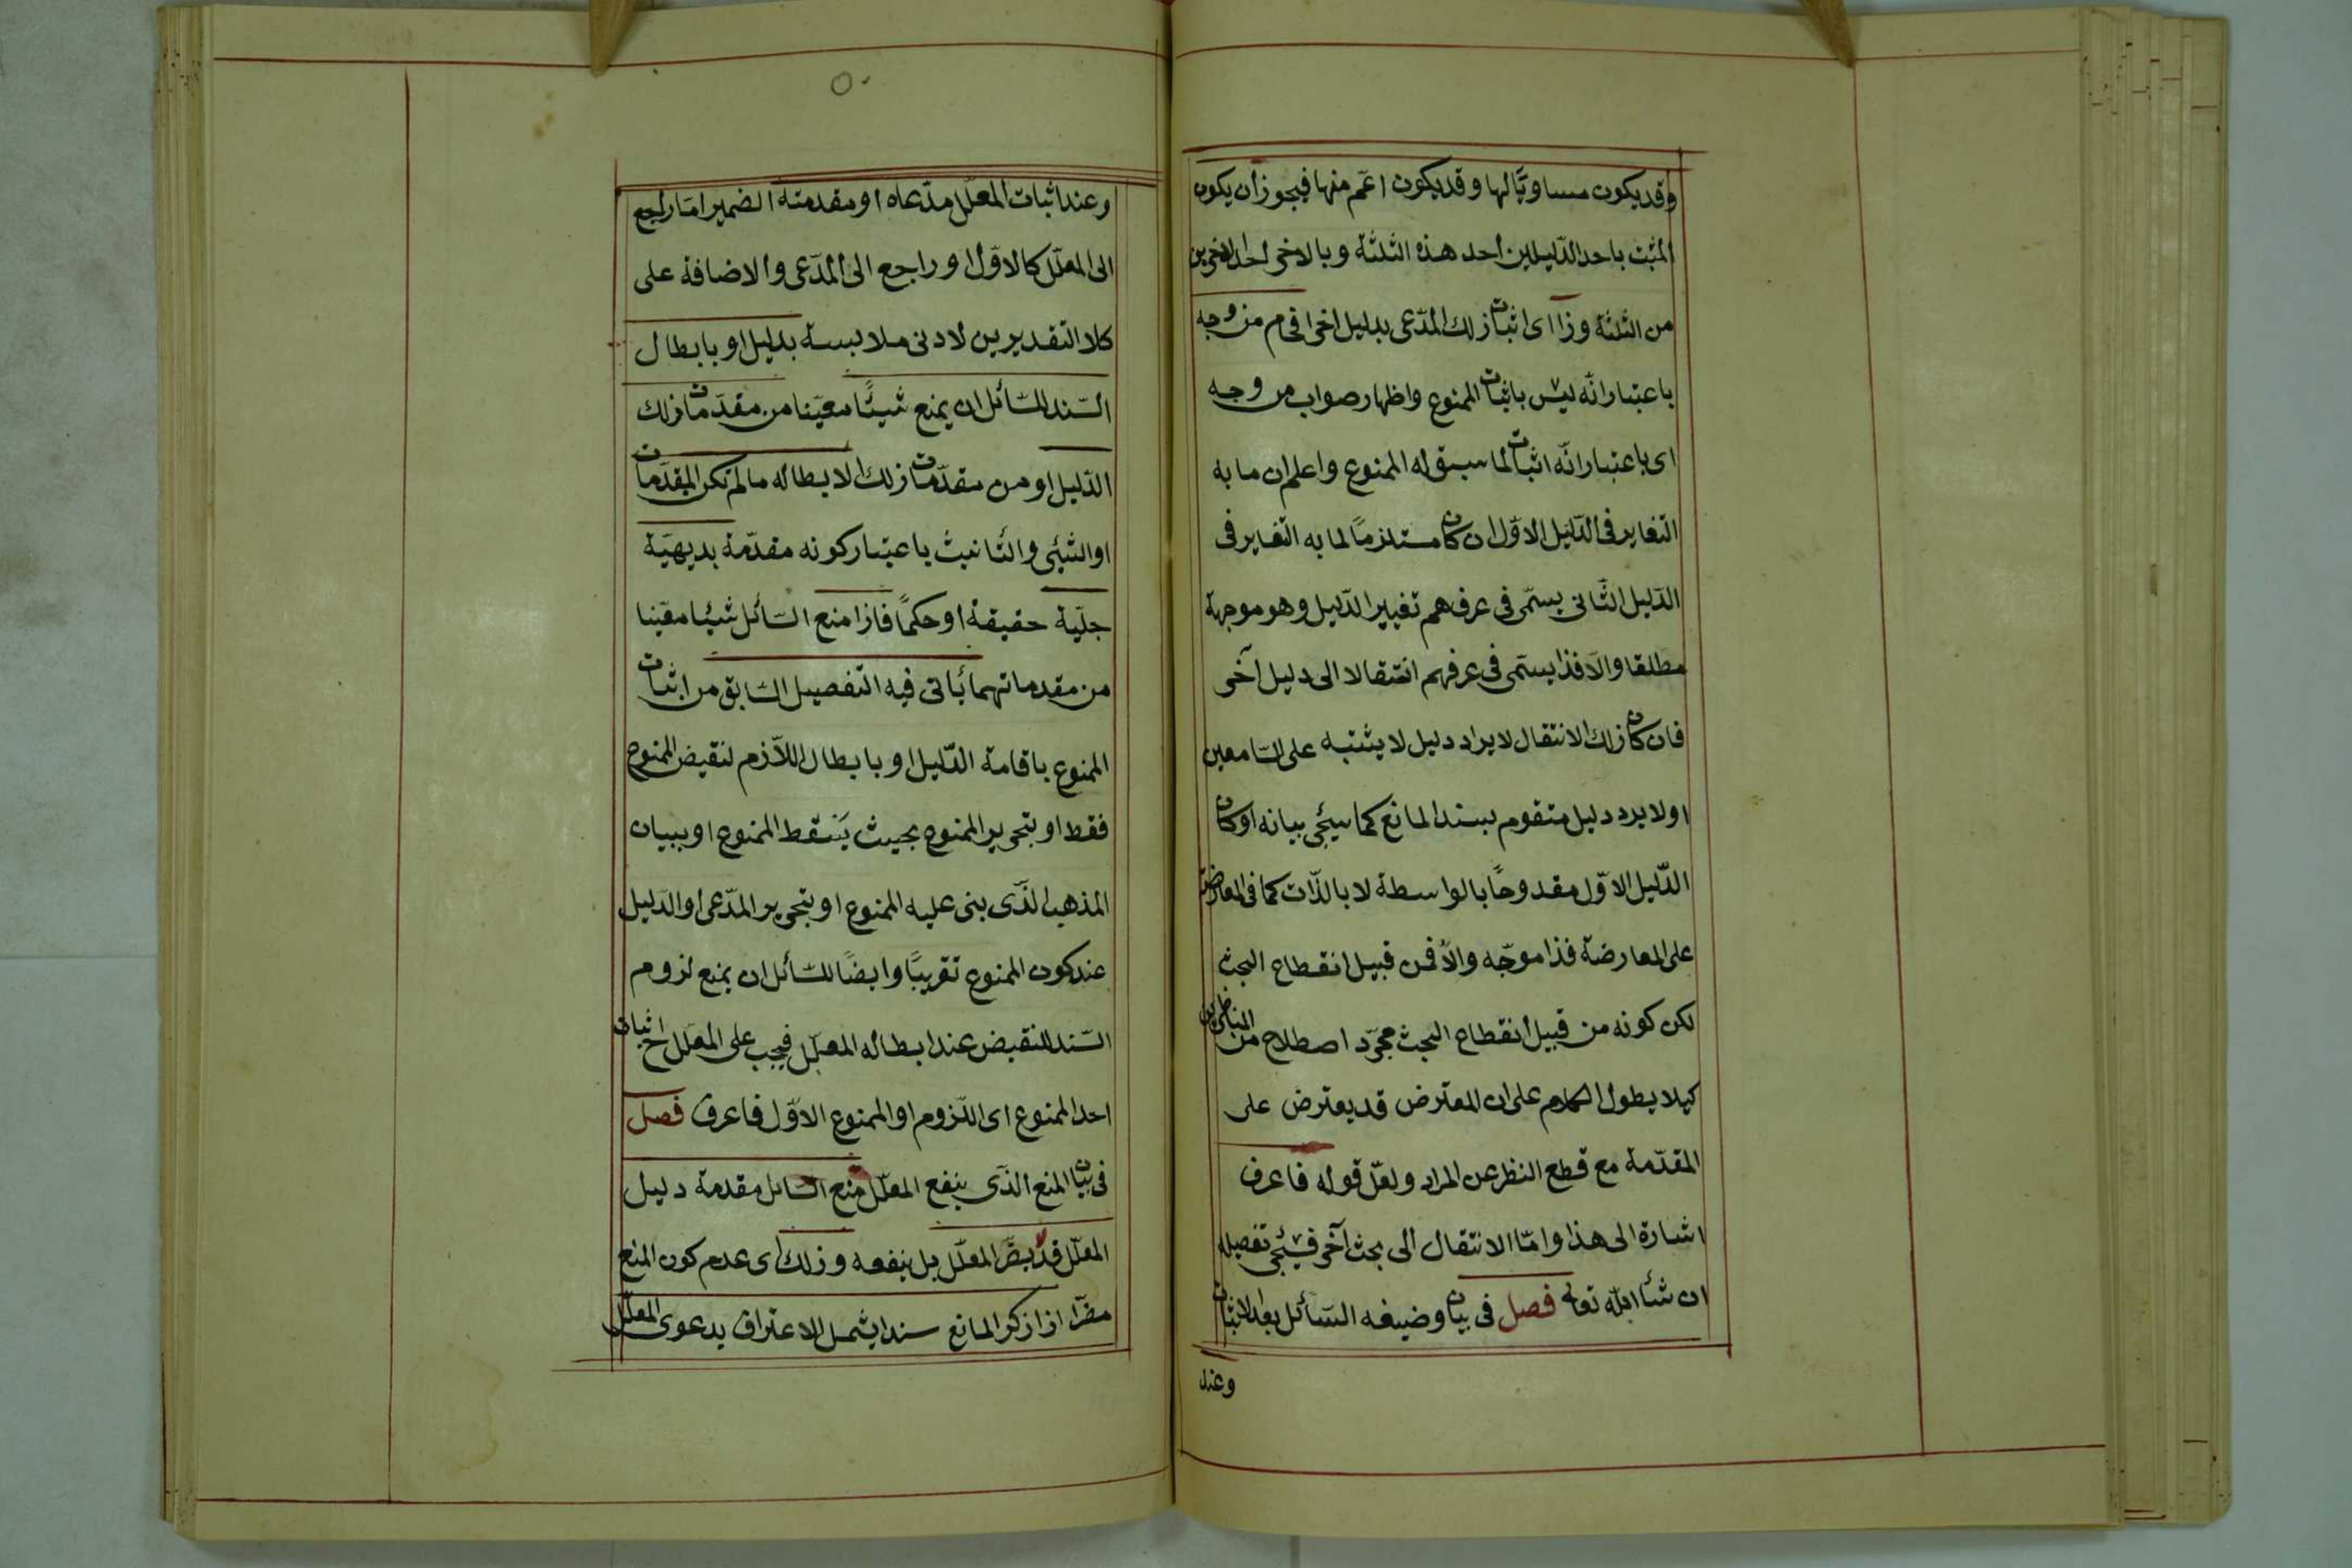 وقد يكون مساويًا لها وقد يكون اعم منها فيجوز أن يكون
المثبت باحد الدّليلين أحد هذه الثلثة وبالاخر احد الاخرين
من الثلثة وزا اى اثبات زلك المدّعى بدليل اخر افحام من وجه
باعتبار انّه ليس باثبات الممنوع واظهار صواب من وجه
اى باعتبار انّه اثبات لما سيق له الممنوع واعلم ان ما به
التّغاير فى الدّليل الاوّل ان كان مستلزمًا لما به التّغاير فى
الدّليل الثّانى يسمّى فى عرفهم تغيير الدّليل وهو موجهة
مطلقا والّا فذا يسمّى فى عرفهم انتقالا الى دليل آخر
فان كان زلك الانتقال لايراد دليل لا يشتبه على السّامعين
اولا يرد دليل متقوم بسند المانع كما سيجئ بيانه او كان
الدّليل الاوّل مقدوحًا بالواسطة لا بالذّات كما فى المعارضة
على المعارضة فذا موجّه والّا فمن قبيل انقطاع البحث
لكن كونه من قبيل انقطاع البحث مجرّد اصطلاح من المناظرين
كيلا يطول الكلام على ان المعترض قد يعترض على
المقدّمة مع قطع النظر عن المراد ولعلّ قوله فاعرف
اشارة الى هذا وامّا الانتقال الى بحث آخر فسيجئ تفصيله
ان شأ الله تعالى فصل فى بيان وضيفه السّائل بعد الاثبات
وعند
٥٠
وعند اثبات المعلّل مدّعاه او مقدمته الضمير امّا راجع
الى المعلّل كالاوّل او راجع الى المدّعى والاضافة على
كلا التقديرين لادنى ملابسة بدليل او بابطال
السّند للسّائل ان يمنع شيئًا معيّنا من مقدّمات زلك
الدّليل او من مقدّمات زلك الابطاله مالم تكن المقدّمات
او الشّيئ والتّانيث باعتبار كونه مقدّمة بديهيّة
جليّة حقيقة او حكمًا فازا منع السّائل شيئًا معيّنا
من مقدماتهما يأتى فيه التّفصيل السّابق من اثبات
الممنوع باقامة الدّليل او بابطال اللّازم لنقيض الممنوع
فقط او بتحرير الممنوع بحيث يَسقط الممنوع او ببيان
المذهب الذّى بنى عليه الممنوع او بتحرير المدّعى او الدّليل
عند كون الممنوع تقريبًا وايضًا للسّائل ان يمنع لزوم
السّند للنقيض عند ابطاله المعلّل فيجب على المعلّل ح اثبات
احد الممنوع اى اللّزوم او الممنوع الاوّل فاعرف فصل
فى بيان المنع الذّى ينفع المعلّل منع السّائل مقدمة دليل
المعلّل قد لا يضرّ المعلّل بل ينفعه وزلك اى عدم كون المنع
مضرّا ازا زكر المانع سندا يشمل الاعتراف بدعوى المعلّل